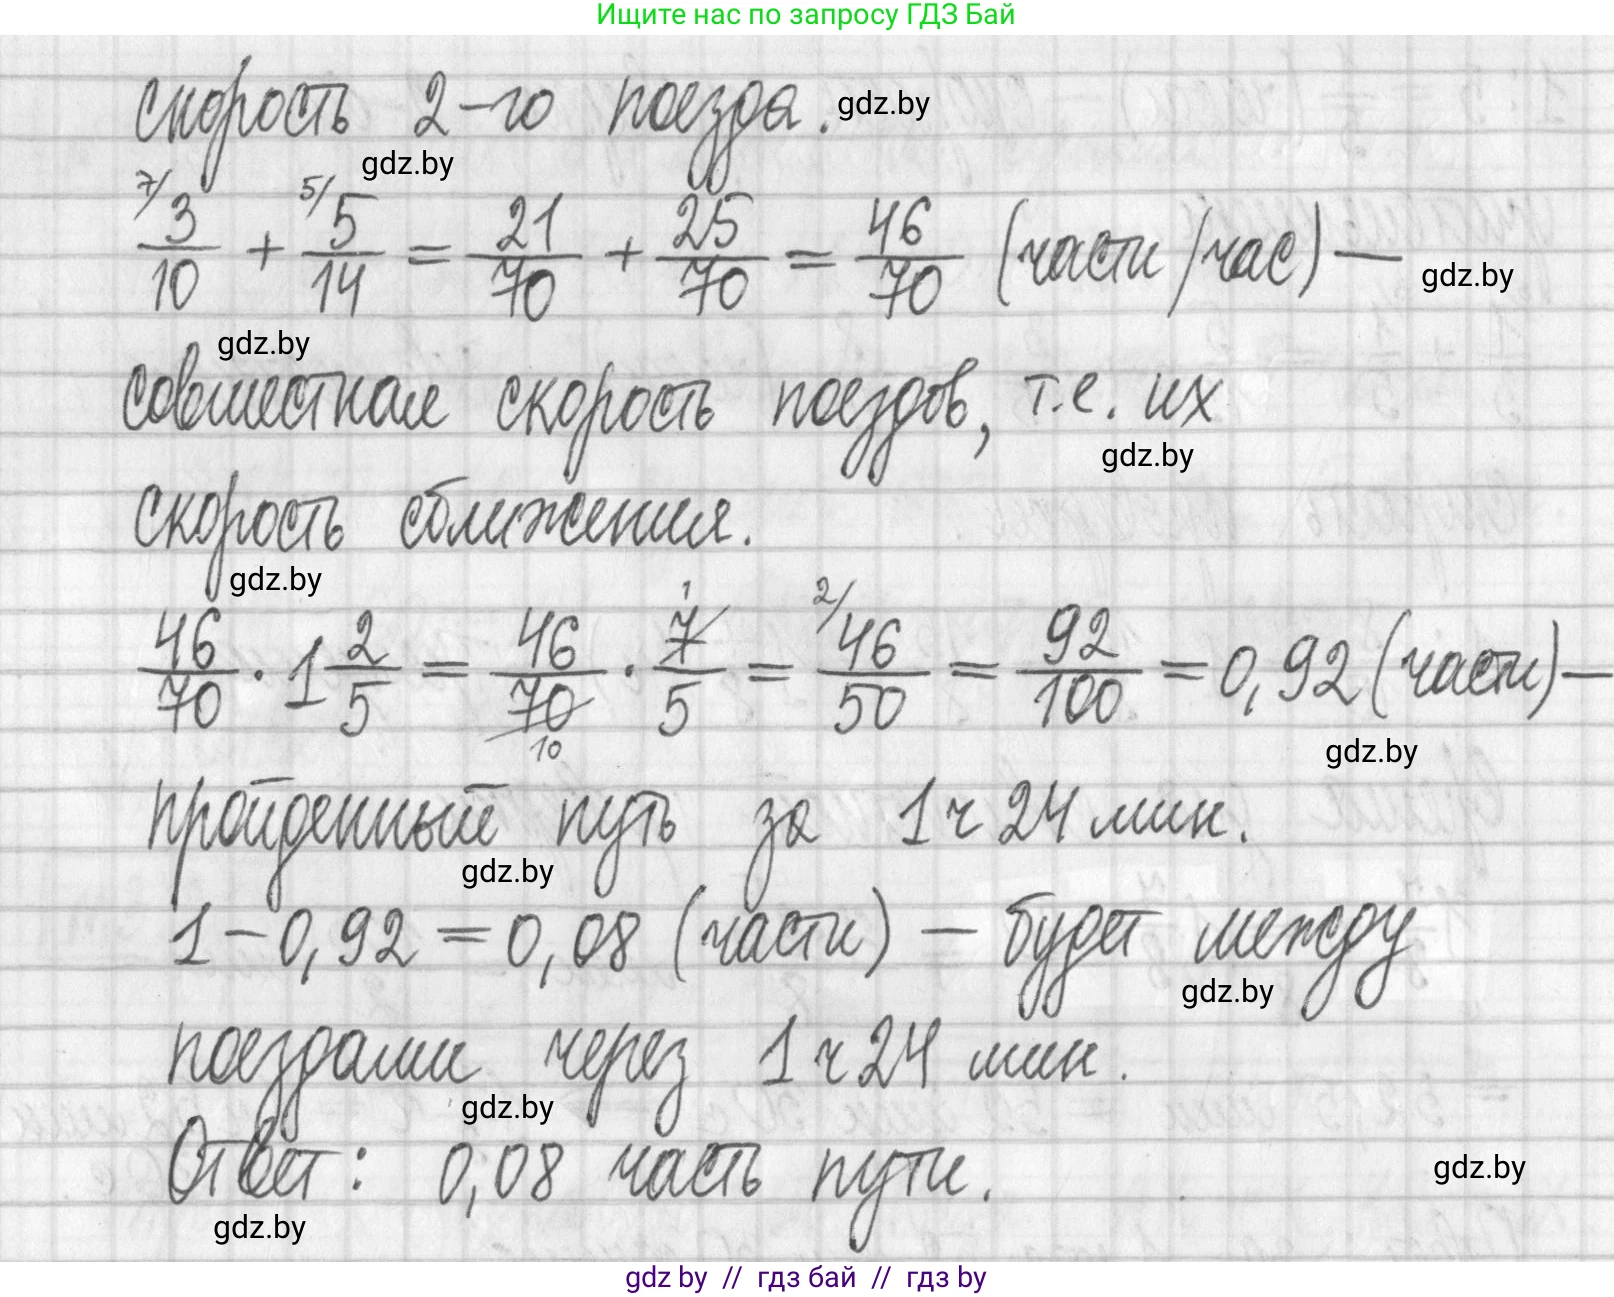 Ищите нас по запросу ГДЗ Бай
скорость 2-го поезда. gdz.by
gdz.by
7/3/10 + 5/5/14 = 21/70 + 25/70 = 46/70 (части/час) — gdz.by
gdz.by
совместная скорость поездов, т.е. их
gdz.by
скорость сближения.
gdz.by
46/70 · 1 2/5 = 46/70 10 · 7 1/5 = 2/46/50 = 92/100 = 0,92 (части) —
gdz.by
пройденный путь за 1 ч 24 мин.
gdz.by
1 − 0,92 = 0,08 (части) — будет между
gdz.by
поездами через 1 ч 24 мин.
gdz.by
Ответ: 0,08 часть пути.
gdz.by
gdz.by
gdz by // гдз бай // гдз by